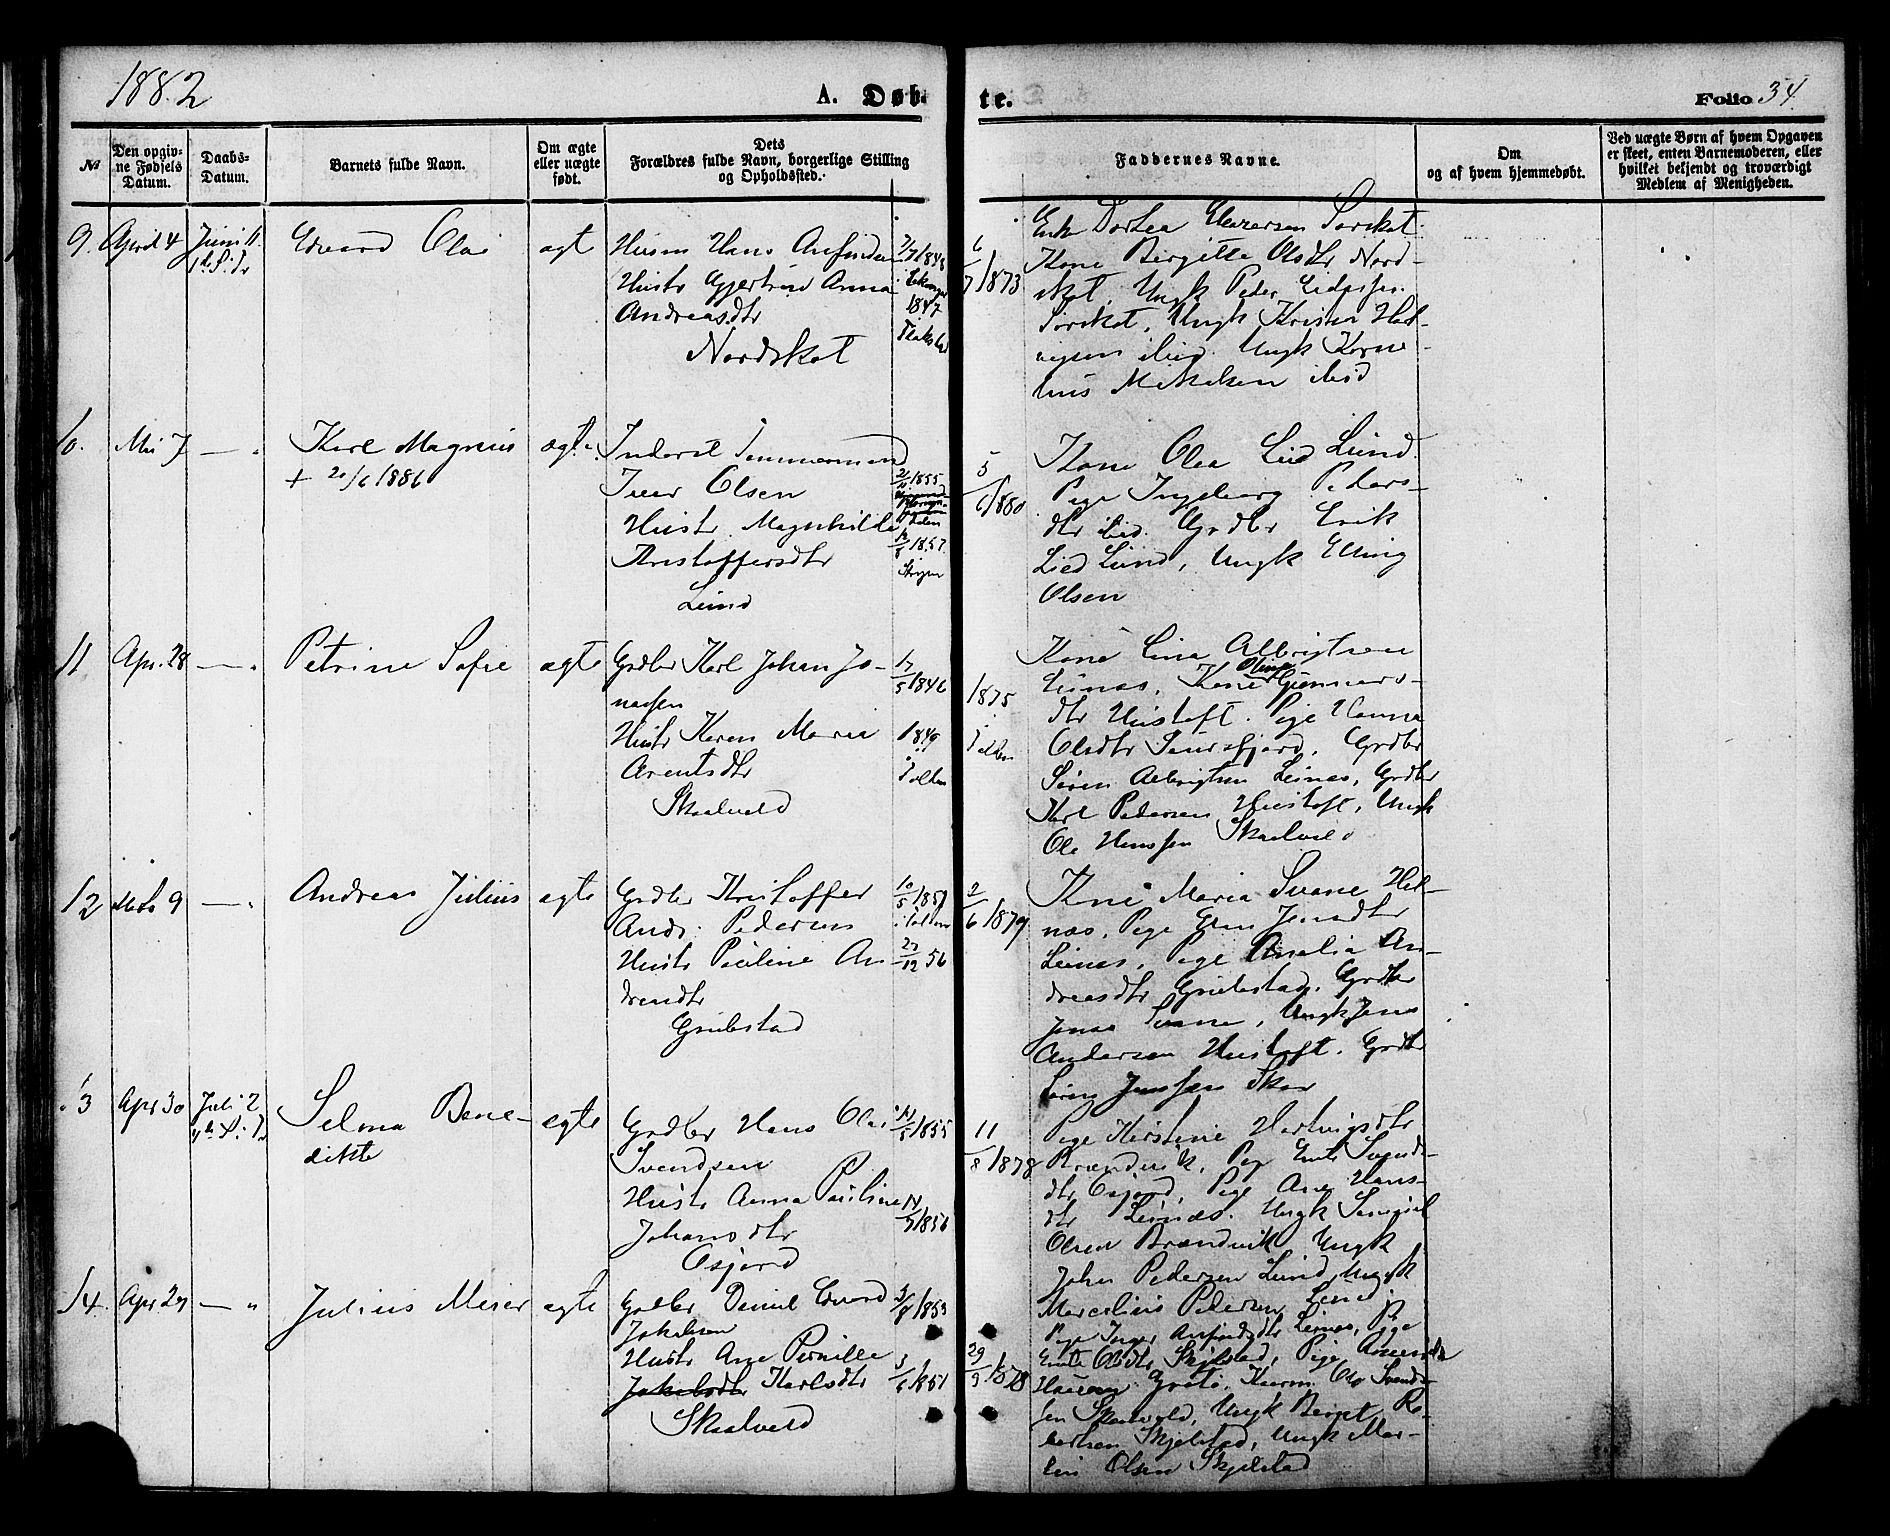 1882
A. Døb-
te.
Folio 34
№
Den opgiv-
ne Fødsels
Datum.
Daabs-
Datum.
Barnets fulde Navn.
Om ægte
eller uægte
født.
Dets
Forældres fulde Navn, borgerlige Stilling
og Opholdssted.
Faddernes Navne.
Om
og af hvem hjemmedøbt.
Ved uægte Børn af hvem Opgaven
er skeet, enten Barnemoderen, eller
hvilket bekjendt og troværdigt
Medlem af Menigheden.
9. April 4 Juni 11.
Edvard Olai
ægt
Husm Hans Anfindsen
Hustr Ane
Andreasdtr
Nordskot
6/7 1873
Enk Dortea Sørskot.
Kone Birgitte Olsdtr Nord-
skot. Ungk Peder
Sørskot, Ungk Kristen Hart-
vigsen ibid. Ungk Korne-
lius Mikelsen ibid
10. Mai 7 — "
Karl Magnus
+ 20/6 1886
ægte
Inderst Tømmermand
Iver Olsen
Hustr Magnhilde
Kristoffersdtr
Lund
1855
1857
5/6 1880
Kone Olea Lied Lund.
Pige Ingeborg Peders-
dtr ibid. Grdbr Erik
Lied Lund, Ungk Elling
Olsen
11 Apr. 28 — "
Petrine Sofie
ægte
Grdbr Karl Johan Jo-
nassen
Hustr Karen Maria
Arentsdtr
Skaalvold
17/5 1846
1849
i Folden
1875
i Folden
Kone Lina Albrigtsen
Leines, Kone Olina Gunnars-
dtr Hustoft. Pige Hanna
Olsdtr Saursfjord. Grdbr
Søren Albrigtsen Leines, Grdbr
Karl Pedersen Hustoft, Ungk
Ole Hanssen Skaalvold
12 9 — "
Andreas Julius
ægte
Grdbr Kristoffer
Andr. Pedersen
Hustr Pauline An-
dreasdtr
Grubstad
10/5 1851
i Folden
27/12 56
2/6 1879
Kone Maria Svane Hel-
nes, Pige Jensdtr
Leines, Pige Amalia An-
dreasdtr Grubstad, Grdbr
Jonas Svane, Ungk Jens
Andersen Hustoft. Grdbr
Søren Jenssen Skar
13 Apr 30 Juli 2
Selma Bene-
dikte
ægte
Grdbr Hans Olai
Svendsen
Hustr Anna Pauline
Johansdtr
Osjord
14/5 1855
14/9 1856
11/8 1878
Pige Kirstine Hartvigsdtr
Brændvik, Pige Svends-
dtr Osjord, Pige Ane Hans-
dtr Leines. Ungk Samuel
Olsen Brændvik Ungk
John Pedersen Lund, Ungk
Marcelius Pedersen Lund.
14. Apr 29 — "
Julius Meier
ægte
Grdbr Daniel Edvard
Jakobsen
Hustr Ane Pernille
Jakobsdtr Karlsdtr
Skaalvold
3/8 1853
3/6 1851
29/9 1878
Pige Inger Anfindsdtr Leines, Pige
Olsdtr Skjelstad, Pige
Grøtø, Husm Ole Svend-
sen Skaalvold, Ungk Bernt Ro-
bertsen Skjelstad, Ungk Mar-
tin Olsen Skjelstad